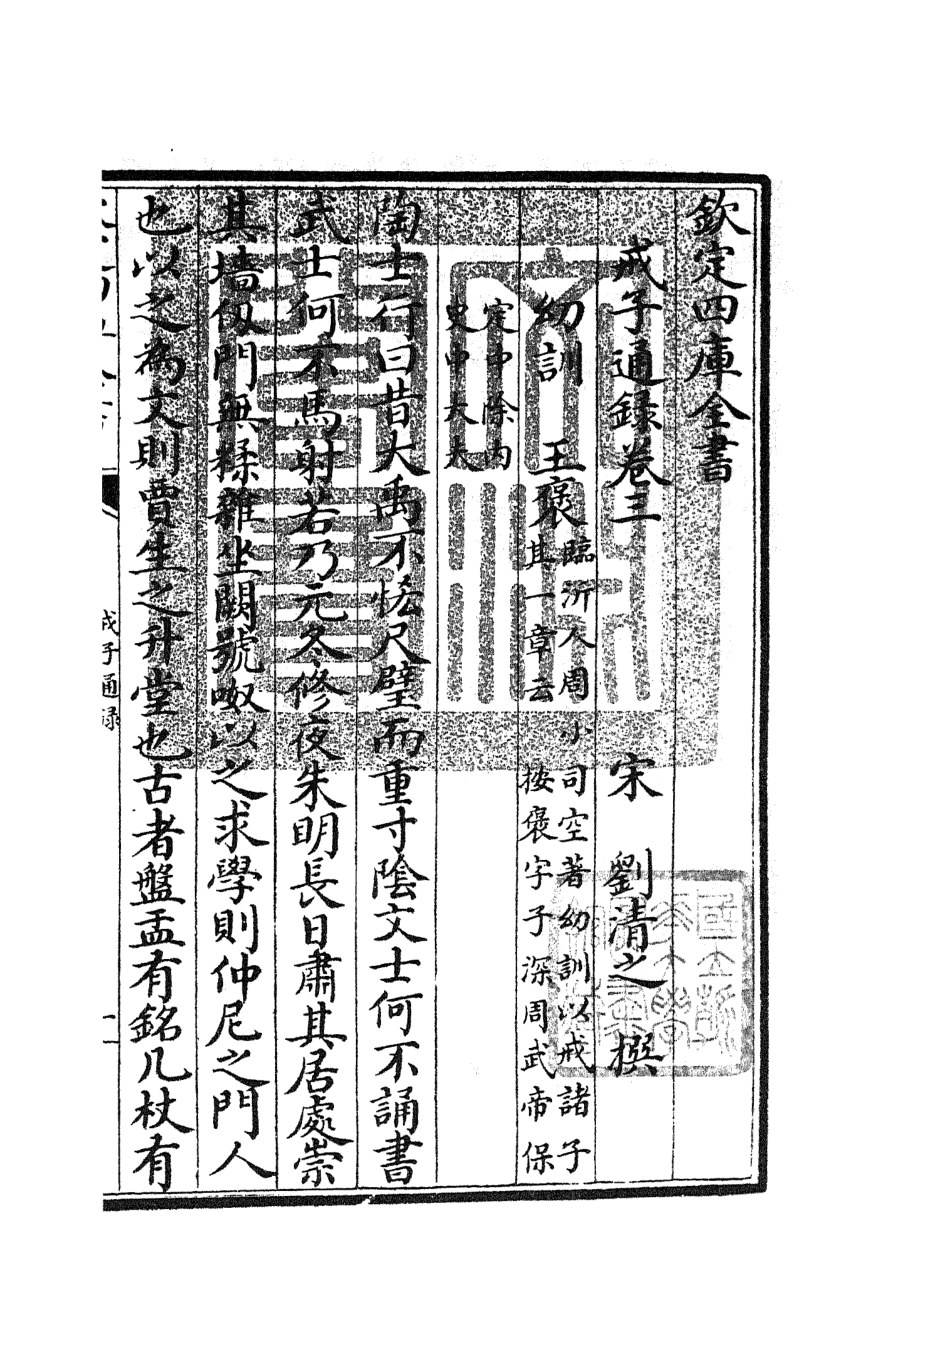 欽定四庫全書
戒子通録卷三　宋　劉清之　撰
幼訓　王褒　臨沂人周小司空著幼訓以戒諸子
其一章云　按褒字子深周武帝保
定中除内
史中大夫
陶士行曰昔大禹不悋尺璧而重寸陰文士何不誦書
武士何不馬射若乃元冬修夜朱明長日肅其居處崇
其墻仞門無糅雜坐闕號呶以之求學則仲尼之門人
也以之為文則賈生之升堂也古者盤盂有銘几杖有
戒子通録